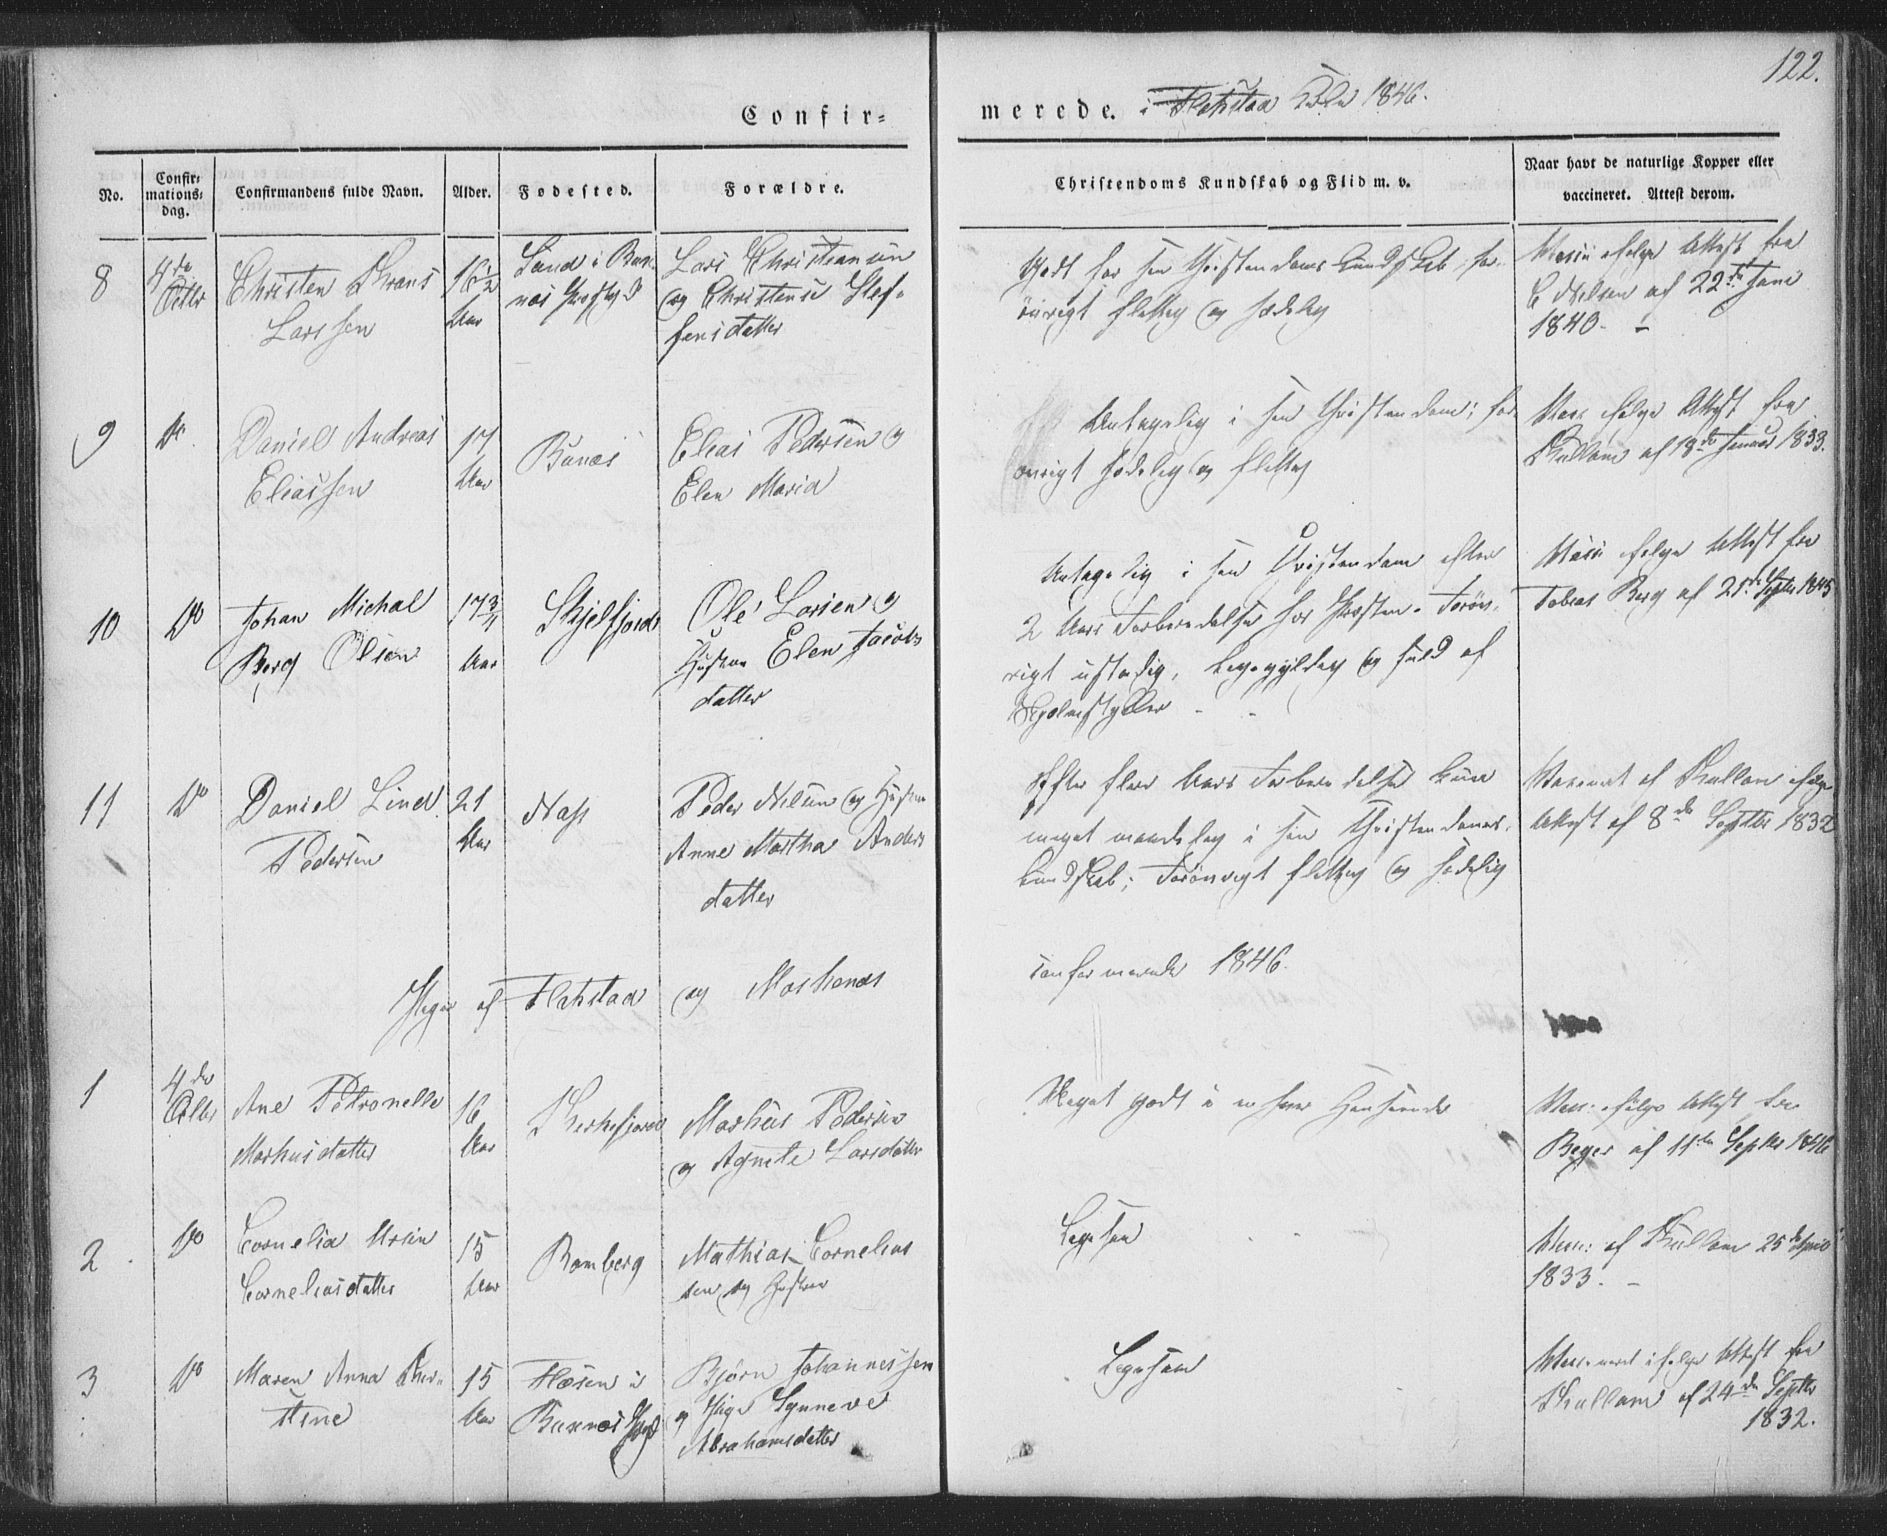 122.
Confir= merede. i Flakstad 1846.
No. Confir= mations= dag. Confirmandens fulde Navn. Alder. Fodested. Forældre. Christendoms Kundskab og Flid m. v. Naar havt de naturlige Kopper eller vaccineret. Attest derom.
8 4de Octbr Christen Larssen 16½ Aar Sund i Bux-
næs Lars Christiansen
og Christense Stef-
fensdatter
Godt for sen Christendoms Kundskab; for-
øvrigt flittig og sædelig
Vacc: ifølge Attest fra
C Nilsen af 22de Juni
1840. –
9 Do Daniel Andreas
Eliassen
17
Aar
Bunæs
Elias Pedersen og
Elen Maria
Antagelig i sen Christendom; for-
øvrigt sædelig og flittig
Vacc ifølge Attest fra
Kullam af 18de Januar 1833.
10 Do Johan Michal
Berg Olsen
17¾
Aar
Skjelfjord
Ole Larsen og
Hustru Elen Jacobs
datter
Antagelig i sen Christendom efter
2 Aars Forberedelse hos Præsten. Forøv-
rigt ustadig, ligegyldig og fuld af
Vacc: ifølge Attest fra
Tobias Berg af 21de Septbr 1845
11 Do Daniel Lind
Pedersen
21
Aar
Næss
Peder Nilsen og Hustru
Anne Martha Anders
datter
Efter flere Aars Forberedelse kun
meget maadelig i sen Christendoms-
kundskab; Forøvrigt flittig og sædelig
Vaccineret af Kullam ifølge
Attest af 8de Septbr 1832
Piger af Flakstad og Moskenæs confirmerede 1846.
1 4de Octbr Ane Petronelle
Markusdatter
16
Aar
Kirkefjord
Markus Pedersen
og Agnete Larsdatter
Meget godt i enhver Henseende
Vacc: ifølge Attest fra
Beyer af 11te Septbr 1846
2 Do Cornelia
Corneliasdatter
15
Aar
Ramberg
Mathias Cornelius
sen og Hustru
Ligesaa
Vacc: af Kullam 25de April
1833. –
3 Do Maren Anna
15
Aar
i
Buxnæs
Bjørn Johannessen
og Pige Synneve
Abrahamsdatter
Ligesaa
Vaccineret ifølge Attest fra
Kullam af 24de Septbr
1832.